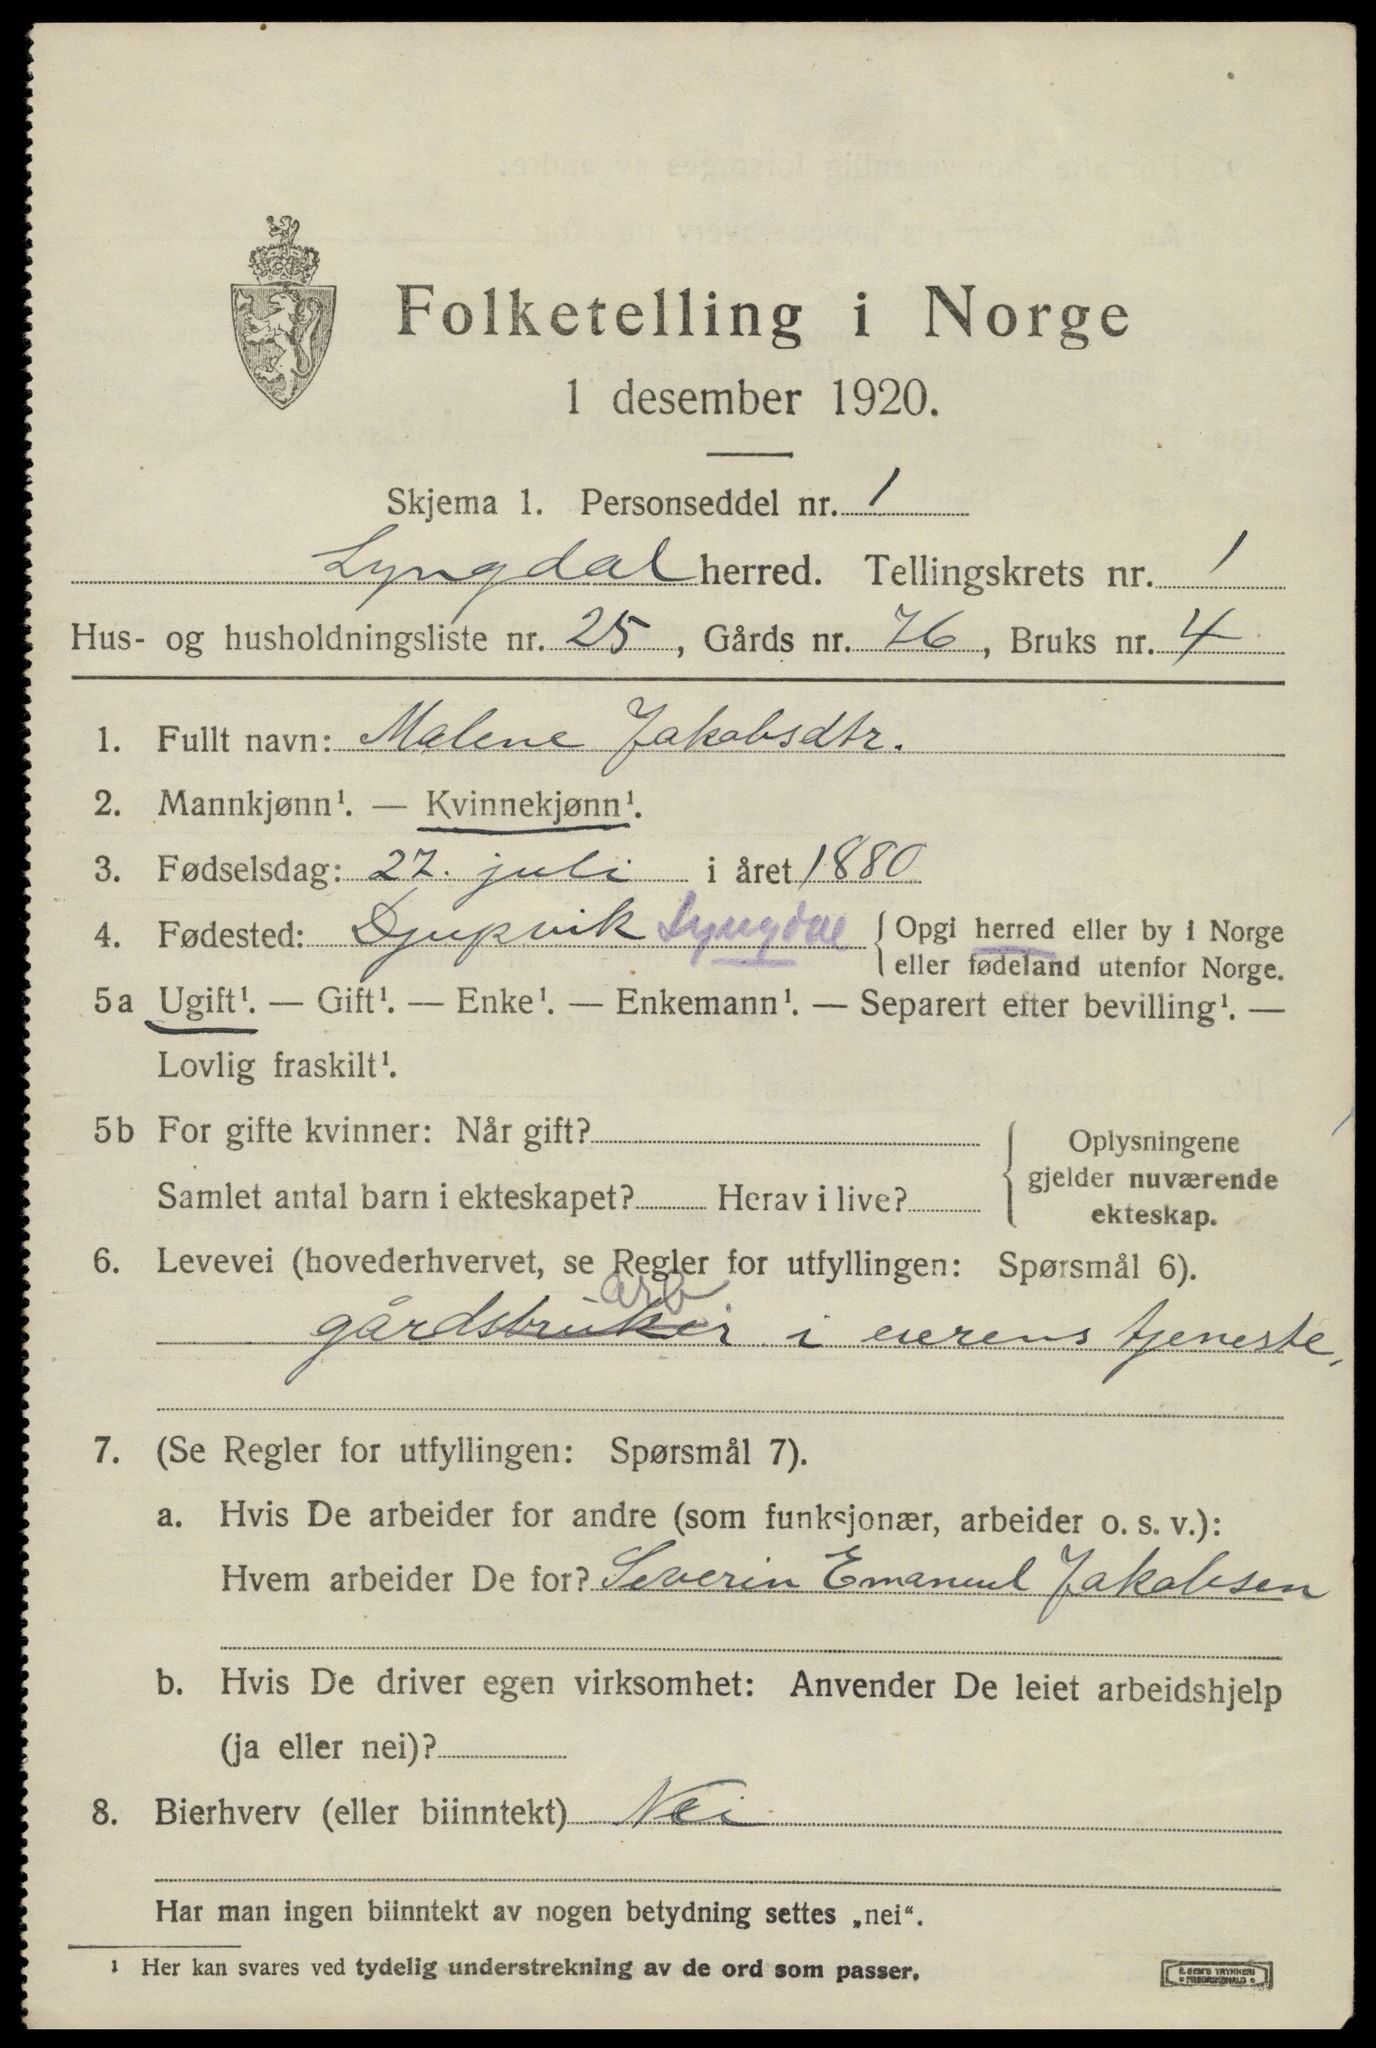 Folketelling i Norge
1 desember 1920.
Skjema 1. Personseddel nr. 1
Lyngdal herred. Tellingskrets nr. 1
Hus- og husholdningsliste nr. 25, Gårds nr. 76, Bruks nr. 4
1. Fullt navn: Malene Jakobsdtr.
2. Mannkjønn¹. — Kvinnekjønn¹.
3. Fødselsdag: 27. juli i året 1880
4. Fødested: Djupvik Lyngdal { Opgi herred eller by i Norge
eller fødeland utenfor Norge.
5a Ugift¹. — Gift¹. — Enke¹. — Enkemann¹. — Separert efter bevilling¹. —
Lovlig fraskilt¹.
5b For gifte kvinner: Når gift? { Oplysningene
gjelder nuværende
Samlet antal barn i ekteskapet? Herav i live? ekteskap.
6. Levevei (hovederhvervet, se Regler for utfyllingen: Spørsmål 6).
arb
gårdsbruker i eierens tjeneste,
7. (Se Regler for utfyllingen: Spørsmål 7).
a. Hvis De arbeider for andre (som funksjonær, arbeider o. s. v.):
Hvem arbeider De for? Severin Emanuel Jakobsen
b. Hvis De driver egen virksomhet: Anvender De leiet arbeidshjelp
(ja eller nei)?
8. Bierhverv (eller biinntekt) Nei
Har man ingen biinntekt av nogen betydning settes „nei“.
¹ Her kan svares ved tydelig understrekning av de ord som passer.